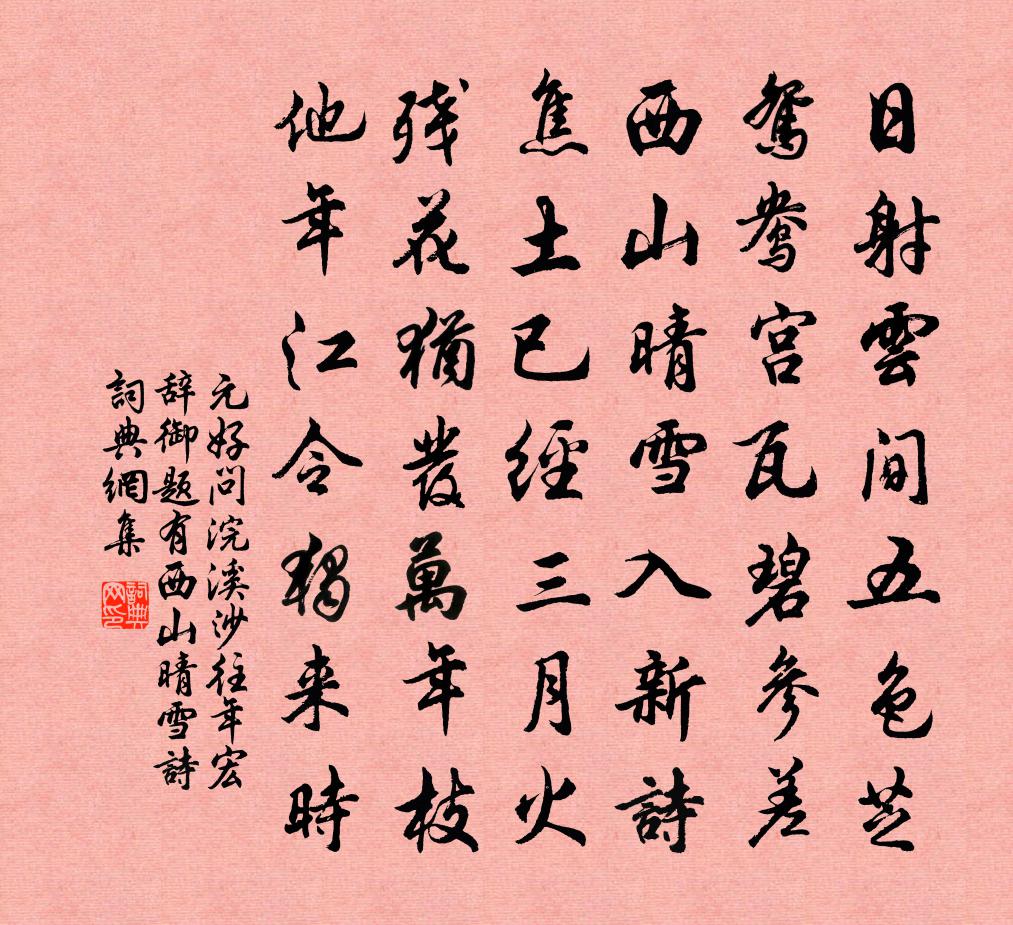 日射雲間五色芝
鴛鴦宮瓦碧參差
西山晴雪入新詩
焦土已經三月火
殘花猶發萬年枝
他年江令獨来時
元好问浣溪沙往年宏
辞御题有西山晴雪詩
詞典網集
詞典网印